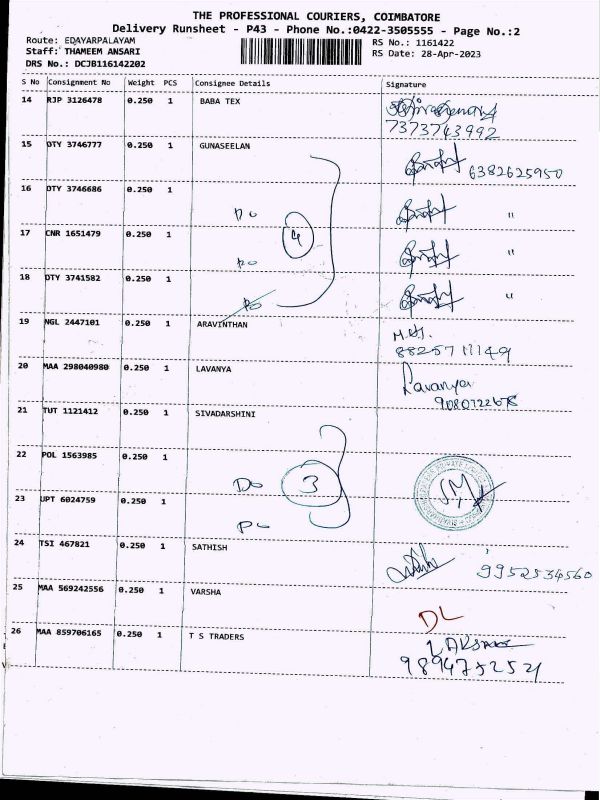 THE PROFESSIONAL COURIERS, COIMBATORE
Delivery Runsheet - P43 - Phone No.:0422-3505555 - Page No.:2
Route: EDAYARPALAYAM RS No.: 1161422
Staff: THAMEEM ANSARI RS Date: 28-Apr-2023
DRS No.: DCJB116142202
S No Consignment No Weight PCS Consignee Details Signature
14 RJP 3126478 0.250 1 BABA TEX
7373743992
15 DTY 3746777 0.250 1 GUNASEELAN
6382625950
16 DTY 3746686 0.250 1
Do "
17 CNR 1651479 0.250 1 4 "
Do
18 DTY 3741582 0.250 1 "
Do
19 NGL 2447101 0.250 1 ARAVINTHAN
8825711149
20 MAA 298040980 0.250 1 LAVANYA Lavanya
9080722678
21 TUT 1121412 0.250 1 SIVADARSHINI
22 POL 1563985 0.250 1
Do 3 SM
23 UPT 6024759 0.250 1
Do
24 TSI 467821 0.250 1 SATHISH
9952534560
25 MAA 569242556 0.250 1 VARSHA
DL
26 MAA 859706165 0.250 1 T S TRADERS